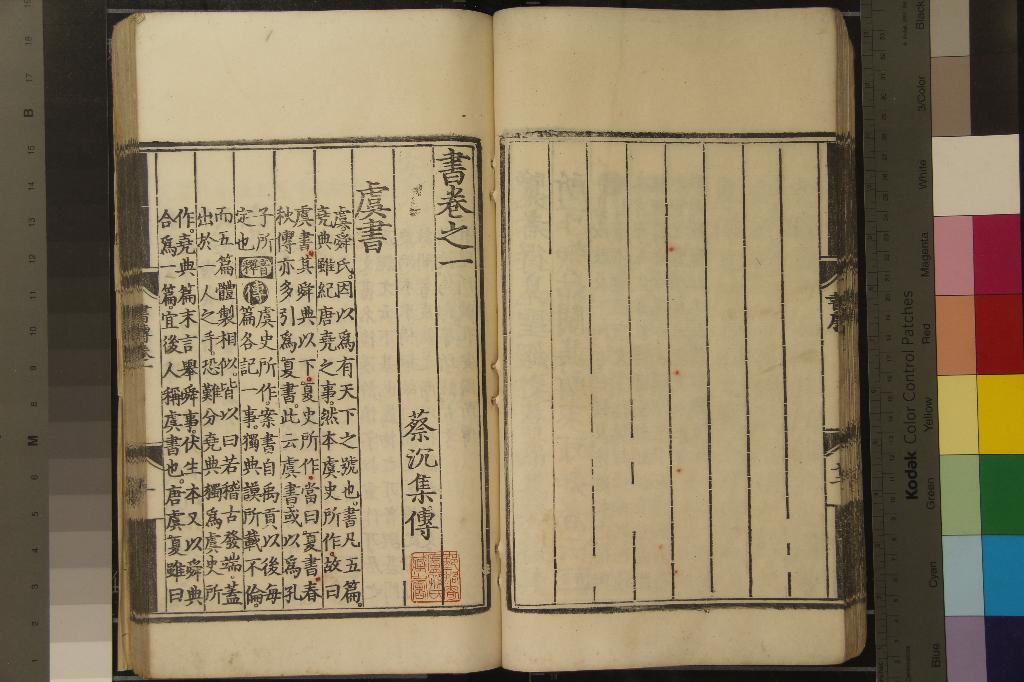 書卷之一
蔡沉集傳
虞書
虞舜氏因以爲有天下之號也書凡五篇
堯典雖紀唐堯之事然本虞史所作故曰
虞書其舜典以下夏史所作當曰夏書春
秋傳亦多引爲夏書此云虞書或以爲孔
子所
定也
音釋
傳
虞史所作案書自禹貢以後每
篇各記一事獨典謨所載不倫
而五篇體製相似皆以曰若稽古發端蓋
出於一人之手恐難分堯典獨爲虞史所
作堯典篇末言舉舜事伏生本又以舜典
合爲一篇宜後人稱虞書也唐虞夏雖曰
書序
Kodak Color Control Patches
Blue
Cyan
Green
Yellow
Red
Magenta
White
3/Color
Black